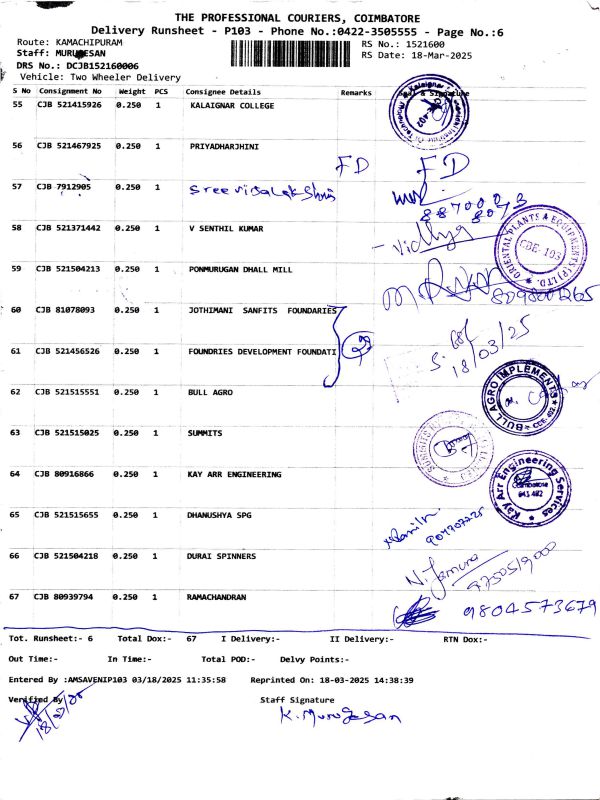 THE PROFESSIONAL COURIERS, COIMBATORE
Delivery Runsheet - P103 - Phone No.:0422-3505555 - Page No.:6
Route: KAMACHIPURAM RS No.: 1521600
Staff: MURUGESAN RS Date: 18-Mar-2025
DRS No.: DCJB152160006
Vehicle: Two Wheeler Delivery
S No Consignment No Weight PCS Consignee Details Remarks & Signature
55 CJB 521415926 0.250 1 KALAIGNAR COLLEGE
56 CJB 521467925 0.250 1 PRIYADHARJHINI
FD FD
57 CJB 7912905 0.250 1 Sree vijalakshmi
88700 03
8073
58 CJB 521371442 0.250 1 V SENTHIL KUMAR Vidhya
ORIENTAL PLANTS & EQUIPMENTS (P) LTD.
CBE-103
59 CJB 521504213 0.250 1 PONMURUGAN DHALL MILL
8098001265
60 CJB 81078093 0.250 1 JOTHIMANI SANFITS FOUNDARIES
61 CJB 521456526 0.250 1 FOUNDRIES DEVELOPMENT FOUNDATI
18/03/25
62 CJB 521515551 0.250 1 BULL AGRO
BULL AGRO IMPLEMENTS
CBE-402
63 CJB 521515025 0.250 1 SUMMITS
64 CJB 80916866 0.250 1 KAY ARR ENGINEERING
Kay Arr Engineering Services
Coimbatore
641 402
65 CJB 521515655 0.250 1 DHANUSHYA SPG
66 CJB 521504218 0.250 1 DURAI SPINNERS
N. Jamuna
9750519000
67 CJB 80939794 0.250 1 RAMACHANDRAN
9804573679
Tot. Runsheet:- 6 Total Dox:- 67 I Delivery:- II Delivery:- RTN Dox:-
Out Time:- In Time:- Total POD:- Delvy Points:-
Entered By :AMSAVENIP103 03/18/2025 11:35:58 Reprinted On: 18-03-2025 14:38:39
Verified By Staff Signature
18/03/25 K. Murugesan